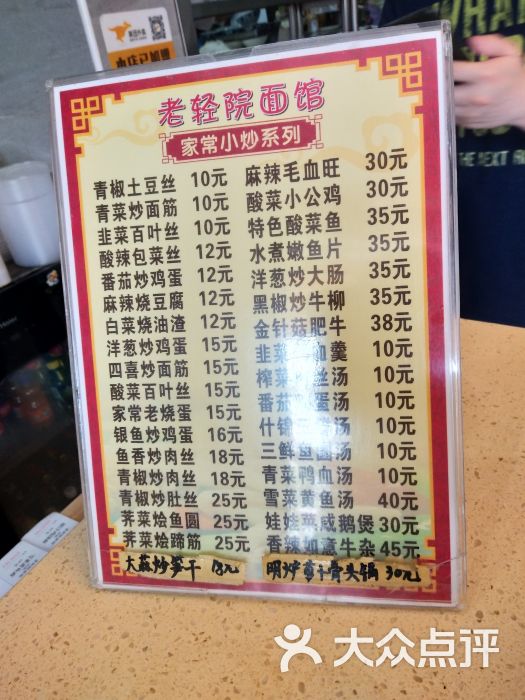 老轻院面馆
家常小炒系列
青椒土豆丝 10元
青菜炒面筋 10元
韭菜百叶丝 10元
酸辣包菜丝 12元
番茄炒鸡蛋 12元
麻辣烧豆腐 12元
白菜烧油渣 12元
洋葱炒鸡蛋 15元
四喜炒面筋 15元
酸菜百叶丝 15元
家常老烧蛋 15元
银鱼炒鸡蛋 16元
鱼香炒肉丝 18元
青椒炒肉丝 18元
青椒炒肚丝 25元
荠菜烩鱼圆 25元
荠菜烩蹄筋 25元
大蒜炒笋干 18元
麻辣毛血旺 30元
酸菜小公鸡 30元
特色酸菜鱼 35元
水煮嫩鱼片 35元
洋葱炒大肠 35元
黑椒炒牛柳 35元
金针菇肥牛 38元
韭菜 血羹 10元
榨菜 丝汤 10元
番茄 蛋汤 10元
什锦 汤 10元
三鲜 圆汤 10元
青菜鸭血汤 10元
雪菜黄鱼汤 40元
娃娃菜咸鹅煲 30元
香辣如意牛杂 45元
明炉 干骨头锅 30元
美团外卖
本店已加盟
THE NEXT
大众点评